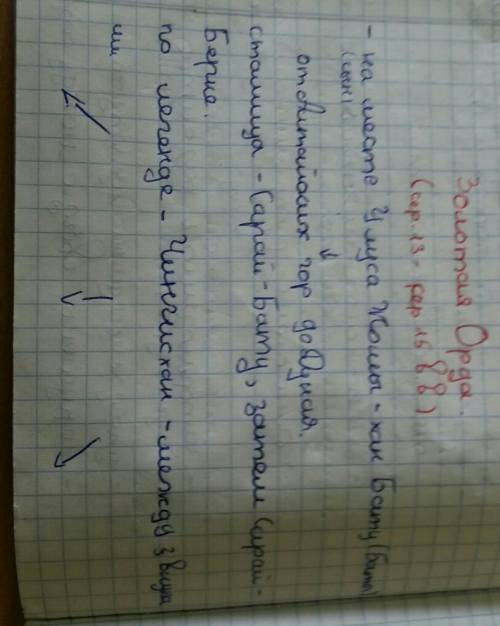 Золотая Орда.
(сер. 13 - сер 15 в в)
- на месте Улуса Жошы - хан Бату (Батый)
(сын)
от Алтайских гор до Дуная.
столица - Сарай-Бату, затем Сарай-
Берке.
по легенде - Чингисхан - между 3 внука
ми